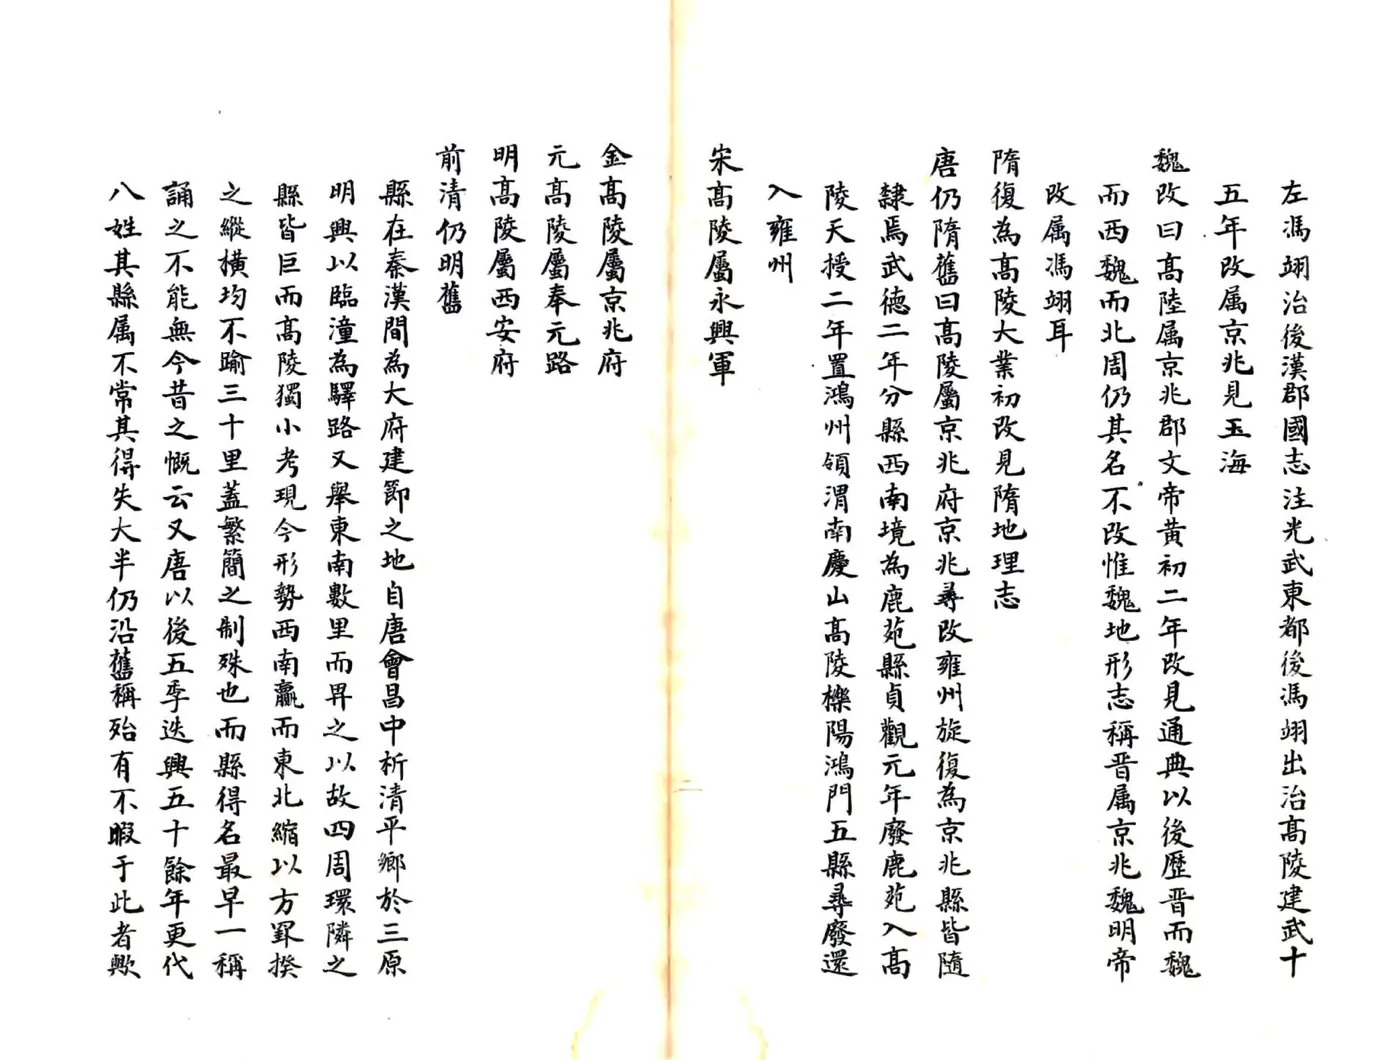 左馮翊治後漢郡國志注光武東都後馮翊出治高陵建武十
五年改属京兆見玉海
魏改曰高陸属京兆郡文帝黄初二年改見通典以後歷晋而魏
而西魏而北周仍其名不改惟魏地形志稱晋属京兆魏明帝
改属馮翊耳
隋復為高陵大業初改見隋地理志
唐仍隋舊曰高陵屬京兆府京兆尋改雍州旋復為京兆縣皆隨
隸焉武德二年分縣西南境為鹿苑縣貞觀元年廢鹿苑入高
陵天授二年置鴻州領渭南慶山高陵櫟陽鴻門五縣尋廢還
入雍州
宋高陵屬永興軍
金高陵屬京兆府
元高陵屬奉元路
明高陵屬西安府
前清仍明舊
縣在秦漢間為大府建節之地自唐會昌中析清平鄉於三原
明興以臨潼為驛路又舉東南數里而畀之以故四周環隣之
縣皆巨而高陵獨小考現今形勢西南贏而東北縮以方罫揆
之縱橫均不踰三十里蓋繁簡之制殊也而縣得名最早一稱
誦之不能無今昔之慨云又唐以後五季迭興五十餘年更代
八姓其縣属不常其得失大半仍沿舊稱殆有不暇于此者歟
二